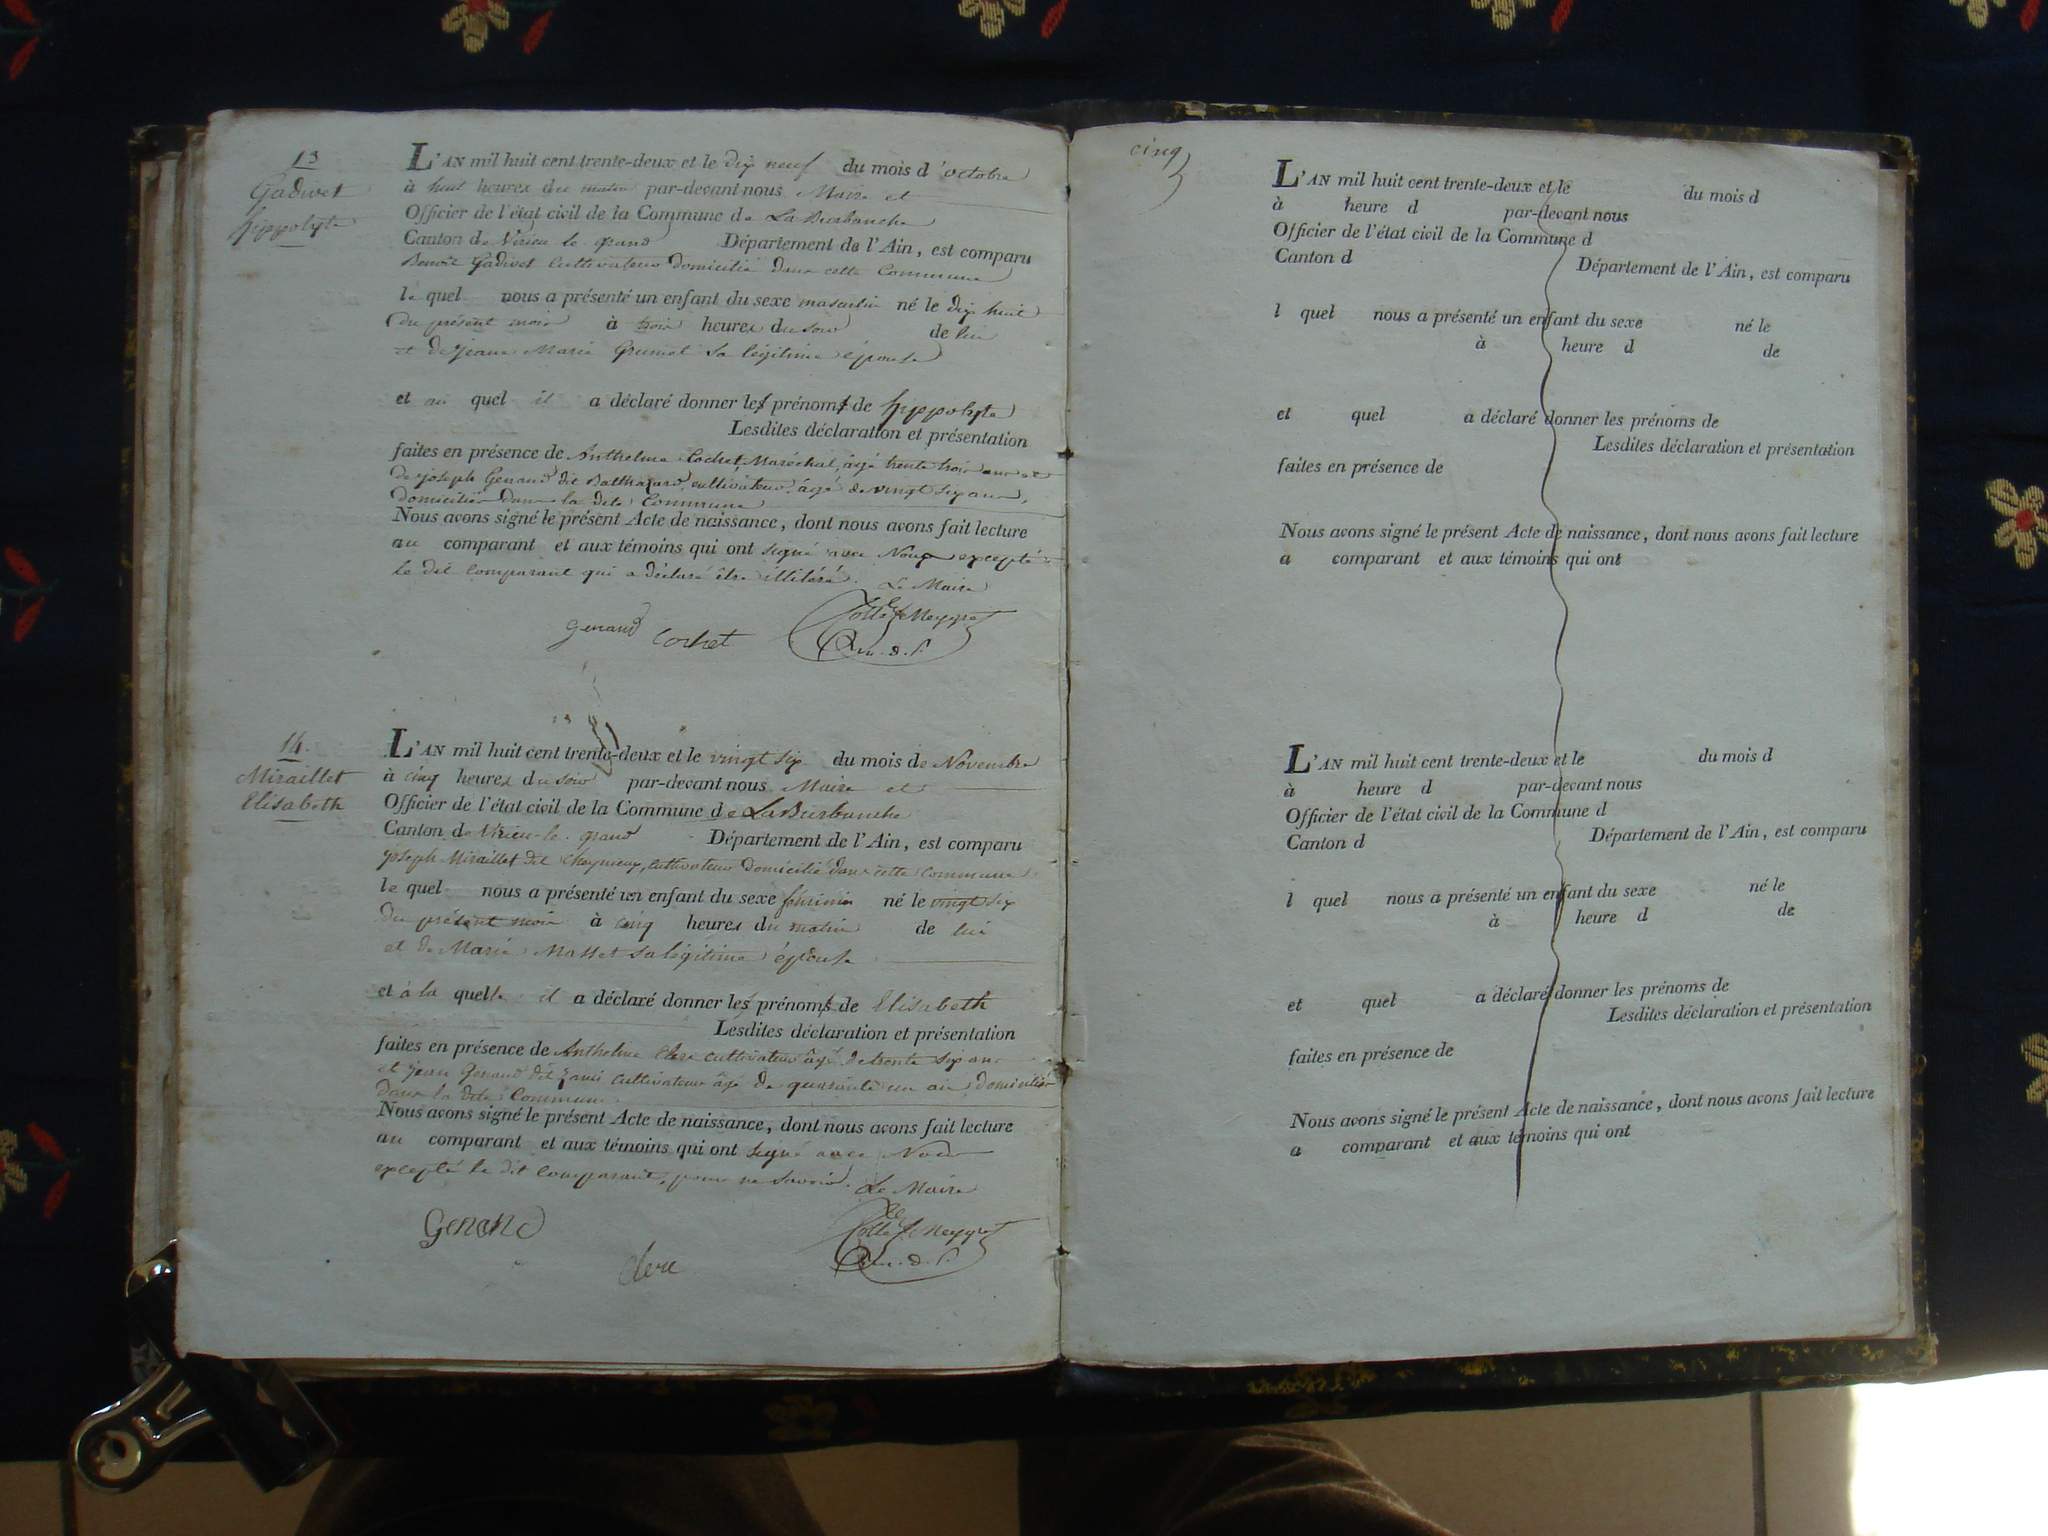 13
Gadivet
hippolyte
L'AN mil huit cent trente-deux et le dix neuf du mois d'octobre
à huit heures du matin par-devant nous Maire et
Officier de l'état civil de la Commune de La Burbanche
Canton de Virieu le grand Département de l'Ain, est comparu
Benoît Gadivet cultivateur domicilié dans cette Commune
lequel nous a présenté un enfant du sexe masculin né le dix huit
du présent mois à trois heures du soir de lui
et de jeane Marie Grumet sa légitime épouse
et au quel il a déclaré donner les prénoms de hyppolyte
Lesdites déclaration et présentation
faites en présence de Anthelme Cochet Maréchal, âgé trente trois ans et
de joseph Genaud dit Balthazard, cultivateur, âgé de vingt six ans,
domiciliés dans la dite Commune
Nous avons signé le présent Acte de naissance, dont nous avons fait lecture
au comparant et aux témoins qui ont signé avec Nous excepté
le dit comparant qui a déclaré être illitéré. Le Maire
Genaud Cochet
14.
Miraillet
Elisabeth
L'AN mil huit cent trente-deux et le vingt six du mois de Novembre
à cinq heures du soir par-devant nous Maire et
Officier de l'état civil de la Commune de La Burbanche
Canton de Virieu-le-grand Département de l'Ain, est comparu
joseph Miraillet dit cultivateur domicilié dans cette Commune
lequel nous a présenté un enfant du sexe féminin né le vingt six
du présent mois à cinq heures du matin de lui
et de Marie Masset sa légitime épouse
et à la quelle il a déclaré donner les prénoms de Elisabeth
Lesdites déclaration et présentation
faites en présence de Anthelme Clerc cultivateur âgé de trente six ans
et jean Genaud dit cultivateur âgé de quarante un ans domiciliés
dans la dite Commune
Nous avons signé le présent Acte de naissance, dont nous avons fait lecture
au comparant et aux témoins qui ont signé avec Nous
excepté le dit comparant, pour ne savoir. Le Maire
Genand
Clerc
cinq
L'AN mil huit cent trente-deux et le du mois d
à heure d par-devant nous
Officier de l'état civil de la Commune d
Canton d Département de l'Ain, est comparu
l quel nous a présenté un enfant du sexe né le
à heure d de
et quel a déclaré donner les prénoms de
Lesdites déclaration et présentation
faites en présence de
Nous avons signé le présent Acte de naissance, dont nous avons fait lecture
a comparant et aux témoins qui ont
L'AN mil huit cent trente-deux et le du mois d
à heure d par-devant nous
Officier de l'état civil de la Commune d
Canton d Département de l'Ain, est comparu
l quel nous a présenté un enfant du sexe né le
à heure d de
et quel a déclaré donner les prénoms de
Lesdites déclaration et présentation
faites en présence de
Nous avons signé le présent Acte de naissance, dont nous avons fait lecture
a comparant et aux témoins qui ont